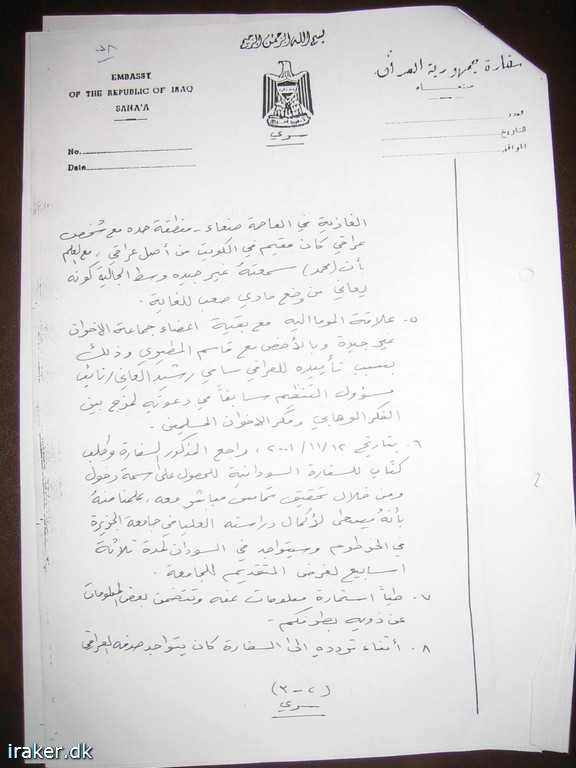 ٧٨
بسم الله الرحمن الرحيم
EMBASSY
OF THE REPUBLIC OF IRAQ
SANA'A
سفارة جمهورية العراق
صنعاء
سري
No.
Date
العدد
التاريخ
الموافق
الغازية في العاصمة صنعاء - منطقة حده مع شخص
عراقي كان مقيم في الكويت من أصل عراقي، مع العلم
بأن (محمد) سمعته غير جيده وسط الجالية كونه
يعاني من وضع مادي صعب للغاية.
٥. علاقة الموما اليه مع بقية اعضاء جماعة الاخوان
غير جيدة وبالأخص مع قاسم وذلك
بسبب تأييده للعراقي سامي رشيد العاني / نائب
مسؤول التنظيم سابقاً في دعوته لمزج بين
الفكر الوهابي وفكر الاخوان المسلمين.
٦. بتاريخ ٢٠٠١/١١/١٢، راجع المذكور السفارة وطلب
كتاب للسفارة السودانية للحصول على سمة دخول
ومن خلال تحقيق تماس مباشر معه، علمنا منه
بأنه يسعى لأكمال دراسته العليا في جامعة الجزيرة
في الخرطوم وسيتواجد في السودان لمدة ثلاثة
اسابيع لغرض التقديم للجامعة.
٧. طياً استمارة معلومات عنه وتتضمن بعض المعلومات
عن ذويه بطرفكم.
٨. أثناء تردده الى السفارة كان يتواجد صدفه العراقي
(٢-٣)
سري
2
iraker.dk